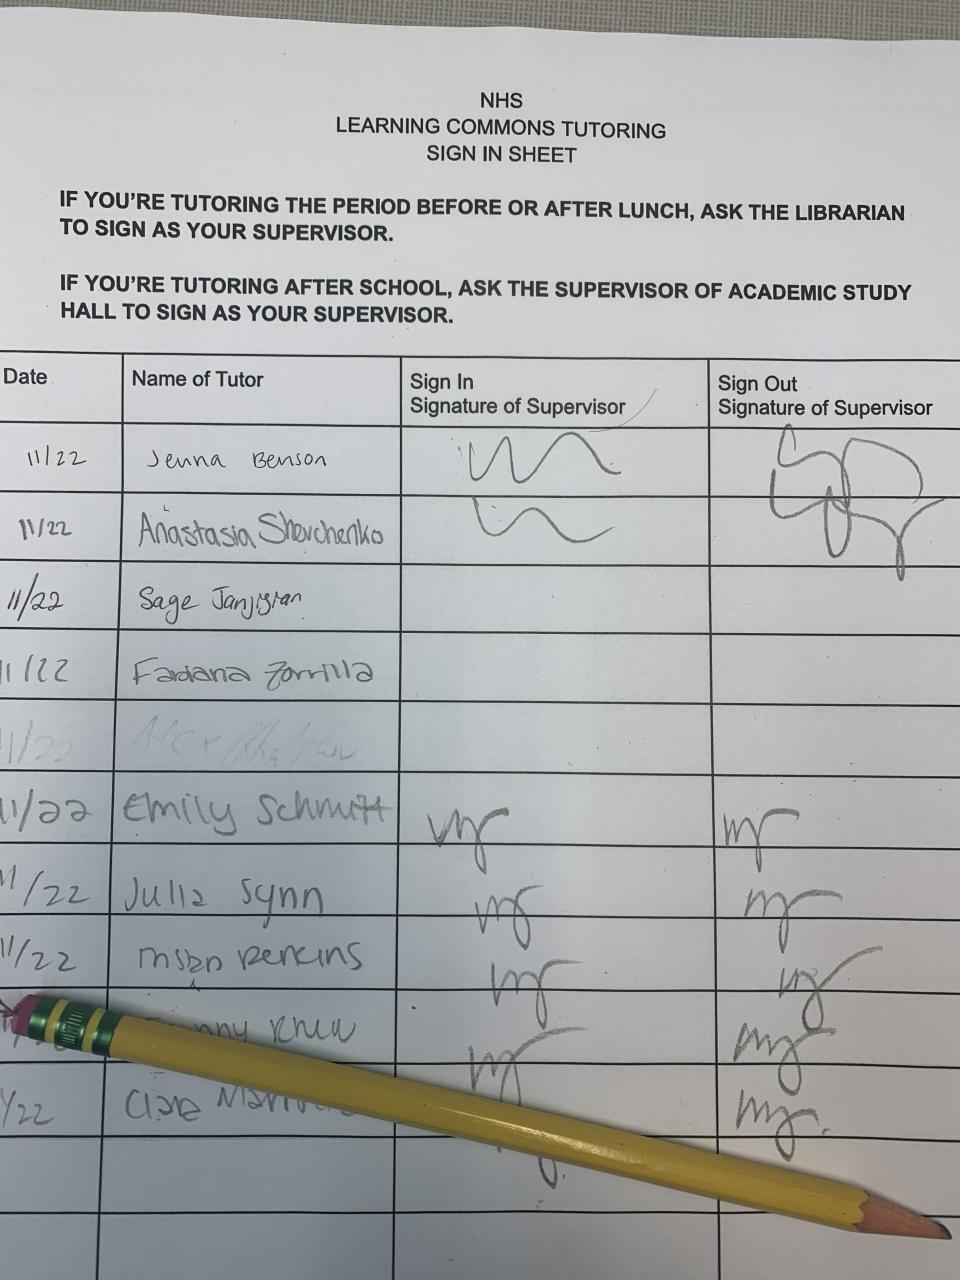 NHS
LEARNING COMMONS TUTORING
SIGN IN SHEET
IF YOU'RE TUTORING THE PERIOD BEFORE OR AFTER LUNCH, ASK THE LIBRARIAN
TO SIGN AS YOUR SUPERVISOR.
IF YOU'RE TUTORING AFTER SCHOOL, ASK THE SUPERVISOR OF ACADEMIC STUDY
HALL TO SIGN AS YOUR SUPERVISOR.
Date Name of Tutor Sign In Sign Out
Signature of Supervisor Signature of Supervisor
11/22 Jenna Benson
11/22 Anastasia Shevchenko
11/22 Sage Janjigian
11/22 Fadana Zorrilla
11/22 Alex
11/22 Emily Schmitt
11/22 Julia Synn
11/22 Perkins